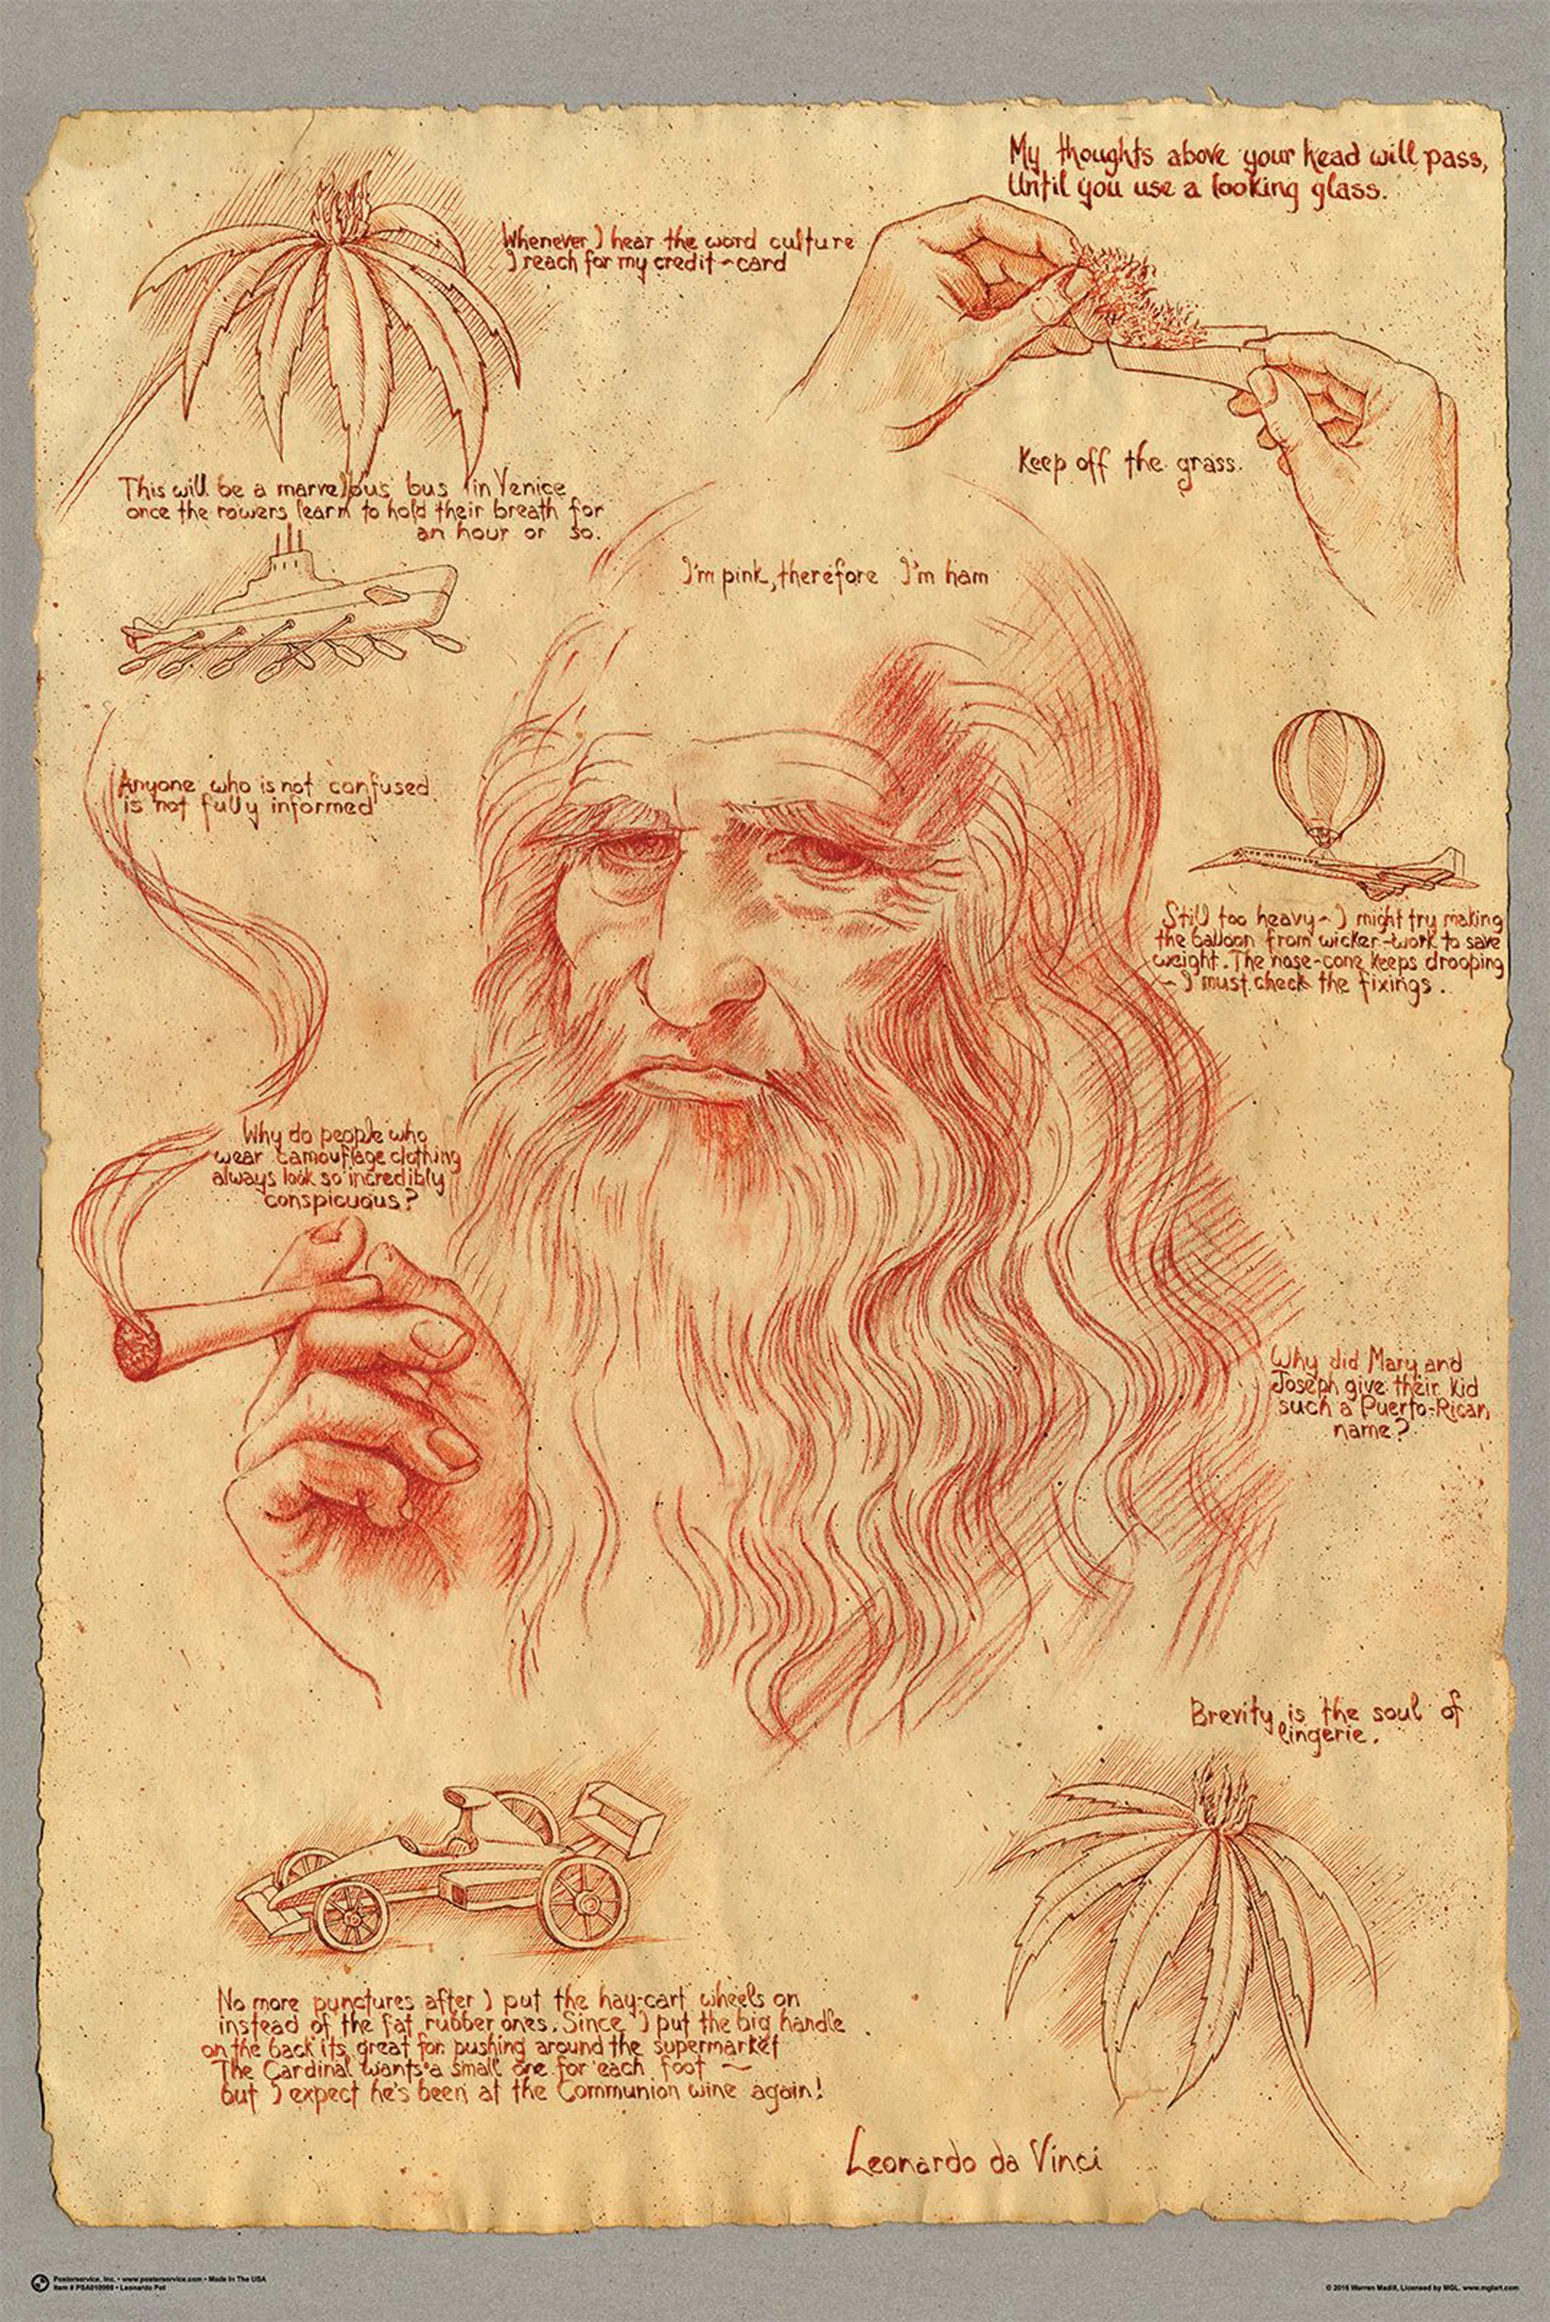 My thoughts above your head will pass,
Until you use a looking glass.
Whenever I hear the word culture
I reach for my credit-card
Keep off the grass.
This will be a marvellous bus in Venice
once the rowers learn to hold their breath for
an hour or so.
I'm pink, therefore I'm ham
Anyone who is not confused
is not fully informed
Still too heavy - I might try making
the balloon from wicker-work to save
weight. The nose-cone keeps drooping
- I must check the fixings.
Why do people who
wear camouflage clothing
always look so incredibly
conspicuous?
Why did Mary and
Joseph give their kid
such a Puerto-Rican
name?
Brevity is the soul of
lingerie.
No more punctures after I put the hay-cart wheels on
instead of the fat rubber ones. Since I put the big handle
on the back its great for pushing around the supermarket
The Cardinal wants a small one for each foot ~
but I expect he's been at the Communion wine again!
Leonardo da Vinci
Posterservice, Inc. • www.posterservice.com • Made In The USA
Item # PSA010960 • Leonardo Pot
© 2016 Warren Madill, Licensed by MGL. www.mglart.com